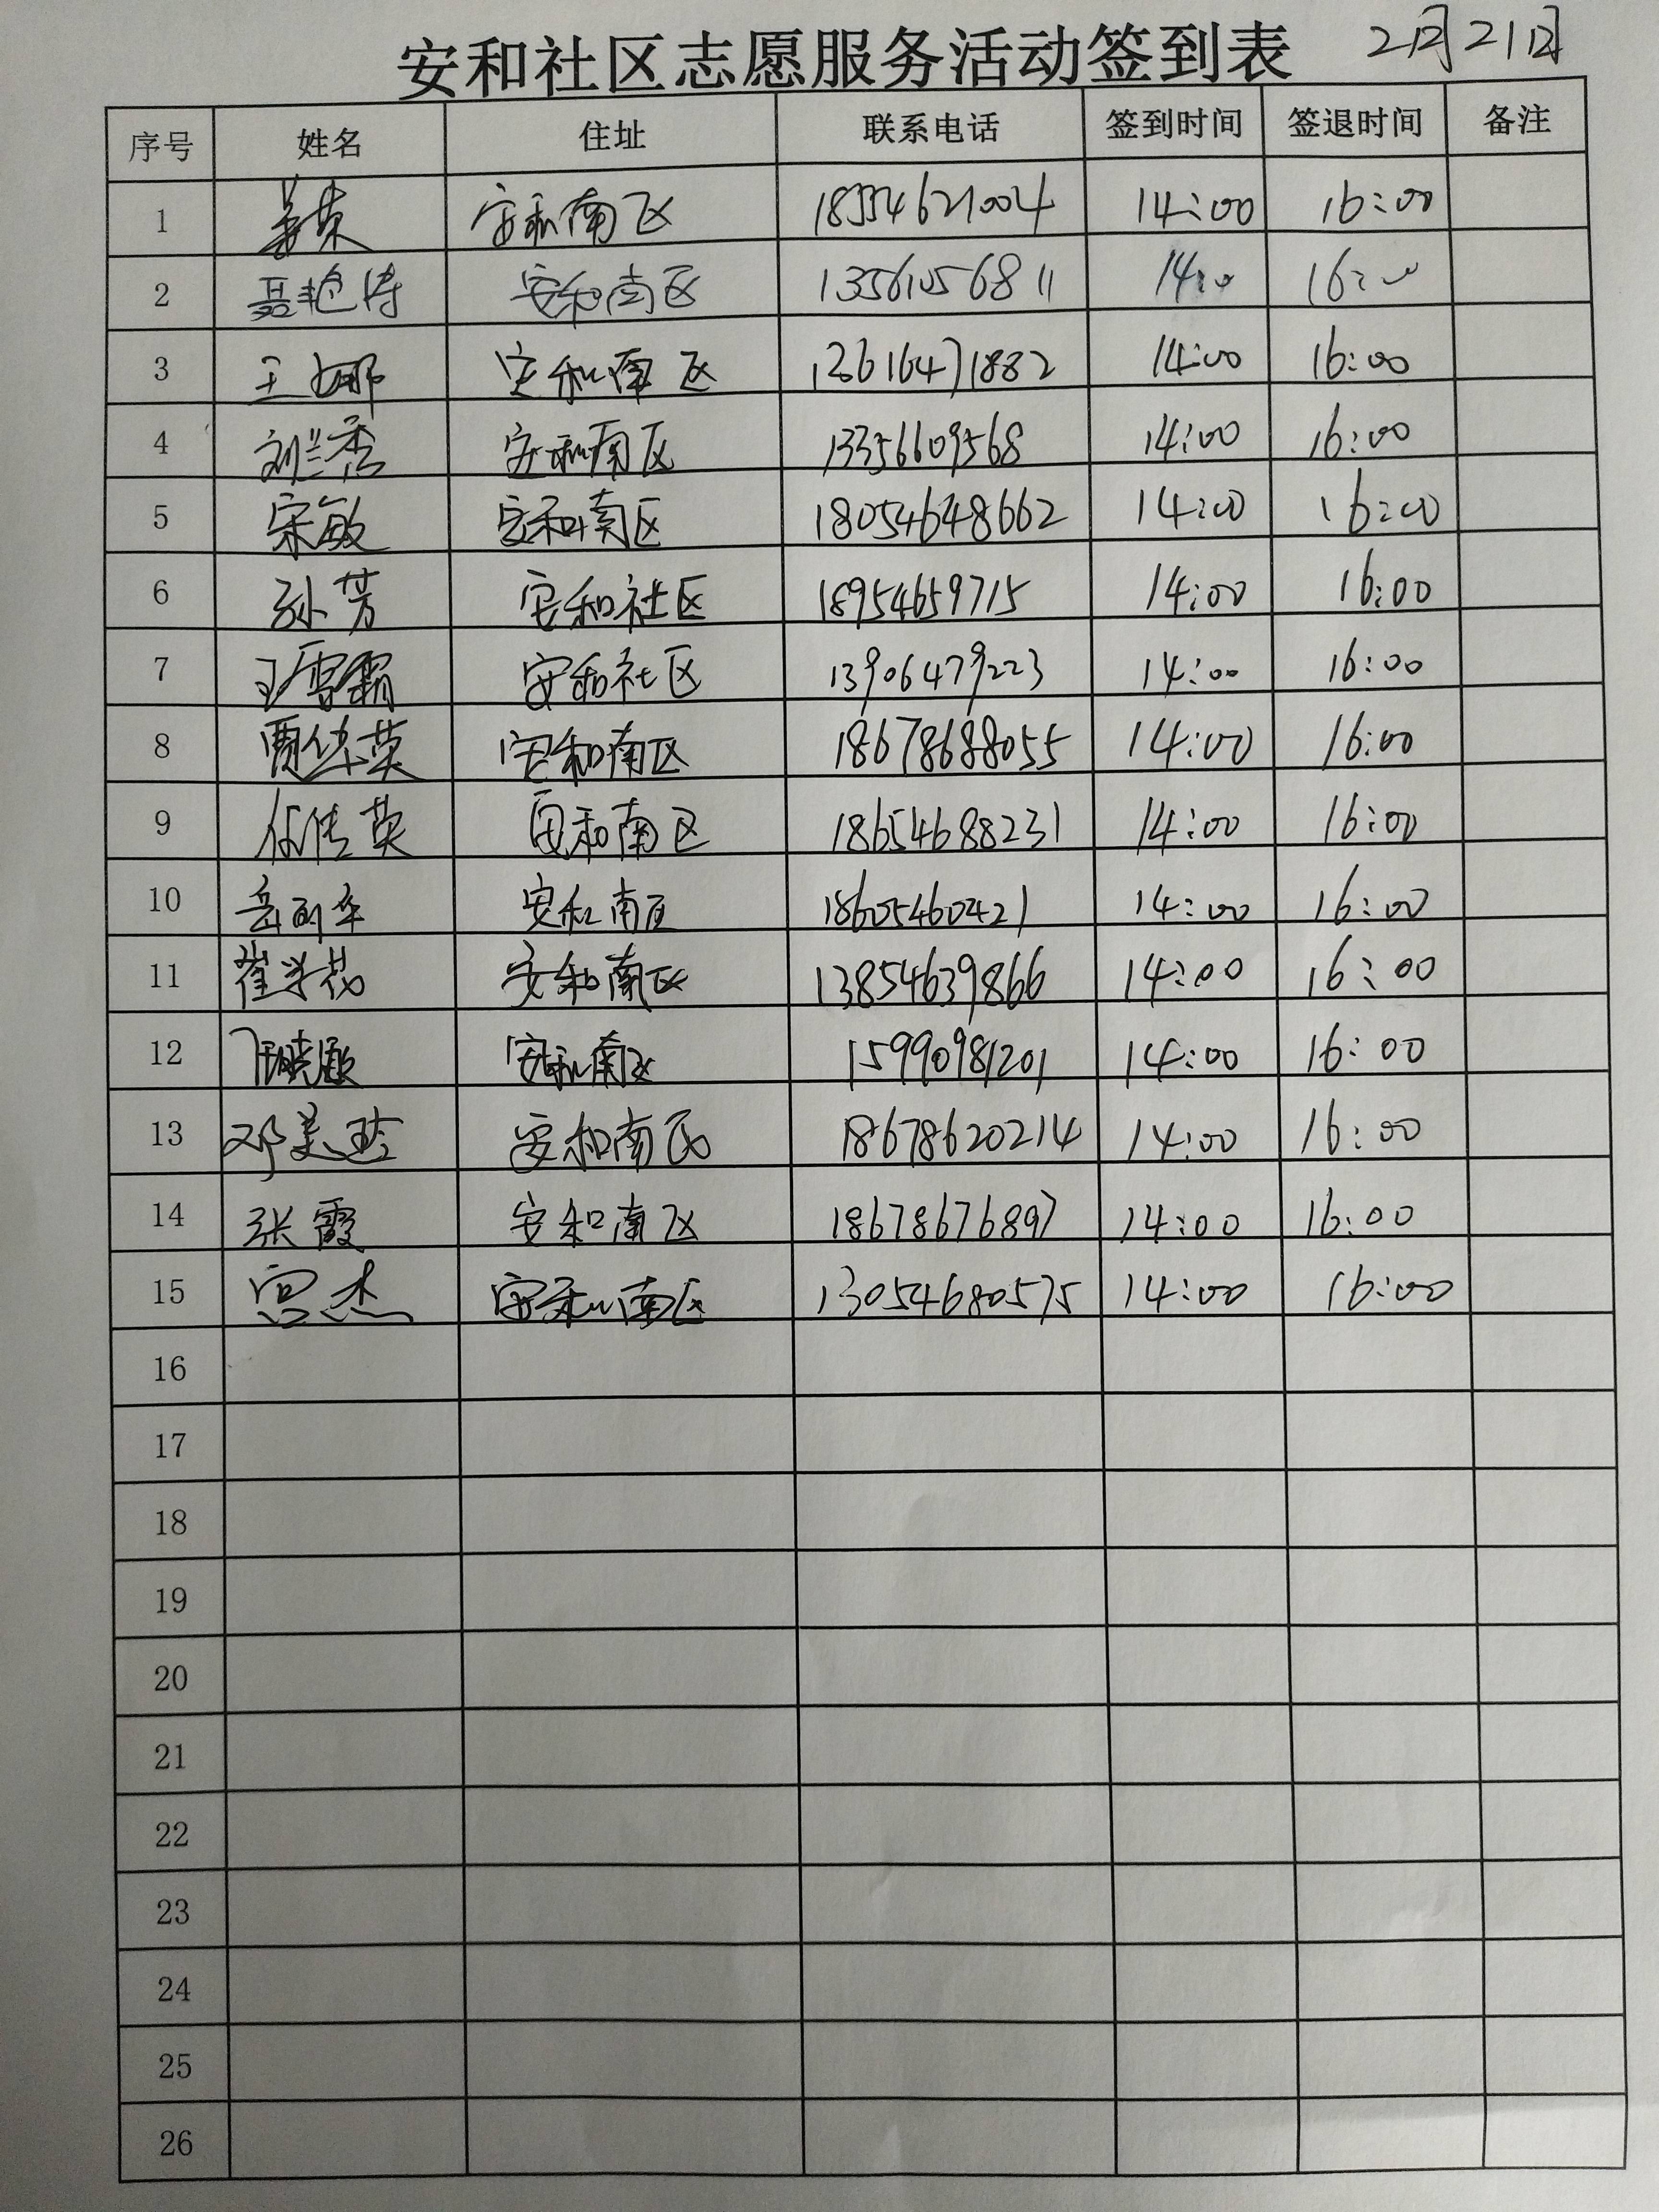 安和社区志愿服务活动签到表 2月21日
序号 姓名 住址 联系电话 签到时间 签退时间 备注
1 安和南区 18554621004 14:00 16:00
2 聂艳涛 安和南区 13561056811 14:00 16:00
3 王娜 安和南区 13616471882 14:00 16:00
4 刘兰香 安和南区 13356609568 14:00 16:00
5 宋敏 安和南区 18054648662 14:00 16:00
6 孙芳 安和社区 18954659715 14:00 16:00
7 王雪霜 安和社区 13906479223 14:00 16:00
8 贾继英 安和南区 18678688055 14:00 16:00
9 任传英 安和南区 18654688231 14:00 16:00
10 安和南区 18605460421 14:00 16:00
11 崔学花 安和南区 13854639866 14:00 16:00
12 安和南区 15990981201 14:00 16:00
13 邓美玲 安和南区 18678620214 14:00 16:00
14 张霞 安和南区 18678676897 14:00 16:00
15 宫杰 安和南区 13054680575 14:00 16:00
16
17
18
19
20
21
22
23
24
25
26